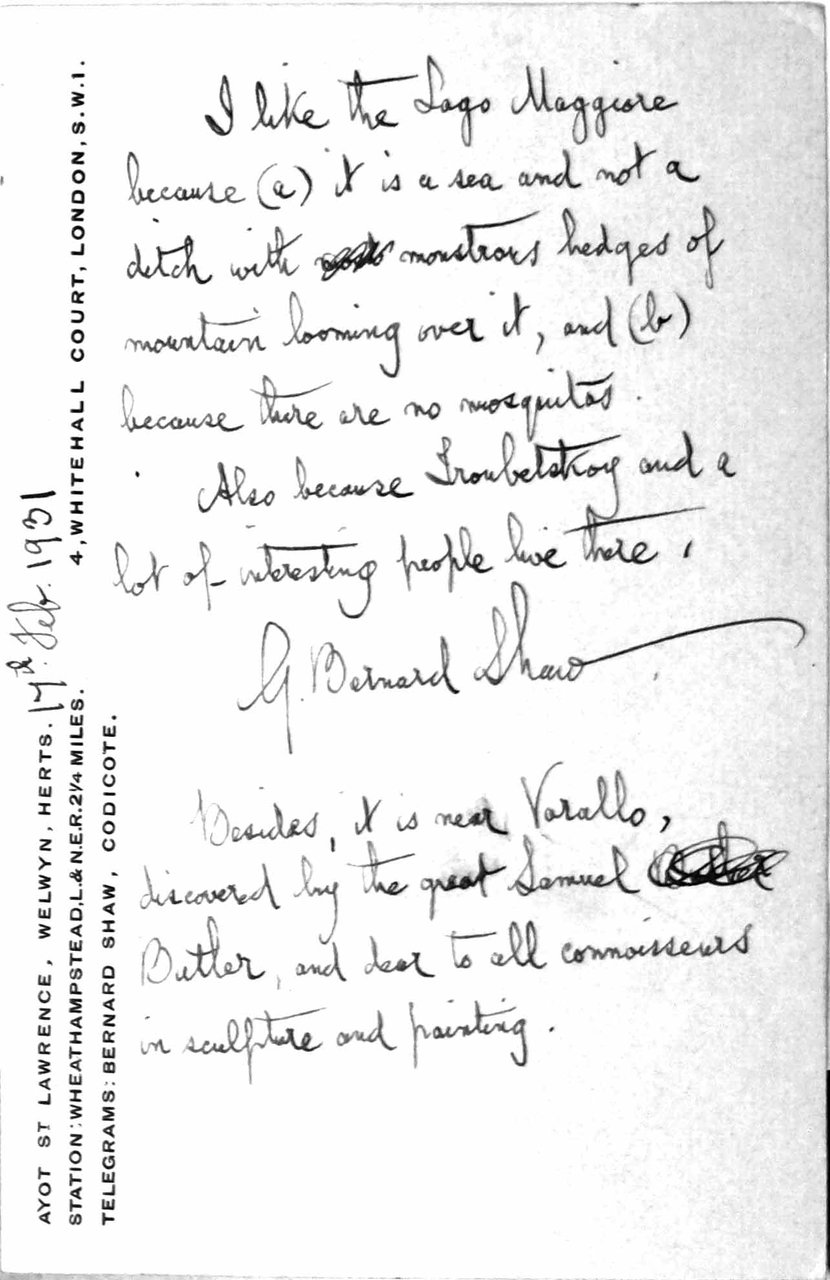 AYOT ST LAWRENCE, WELWYN, HERTS. 17th Feb. 1931
STATION: WHEATHAMPSTEAD, L. & N.E.R. 2¼ MILES.
4, WHITEHALL COURT, LONDON, S.W.1.
TELEGRAMS: BERNARD SHAW, CODICOTE.
I like the Lago Maggiore
because (a) it is a sea and not a
ditch with monstrous hedges of
mountain looming over it, and (b)
because there are no mosquitos.
Also because Troubetskoy and a
lot of interesting people live there.
G. Bernard Shaw
Besides, it is near Varallo,
discovered by the great Samuel
Butler, and dear to all connoisseurs
in sculpture and painting.